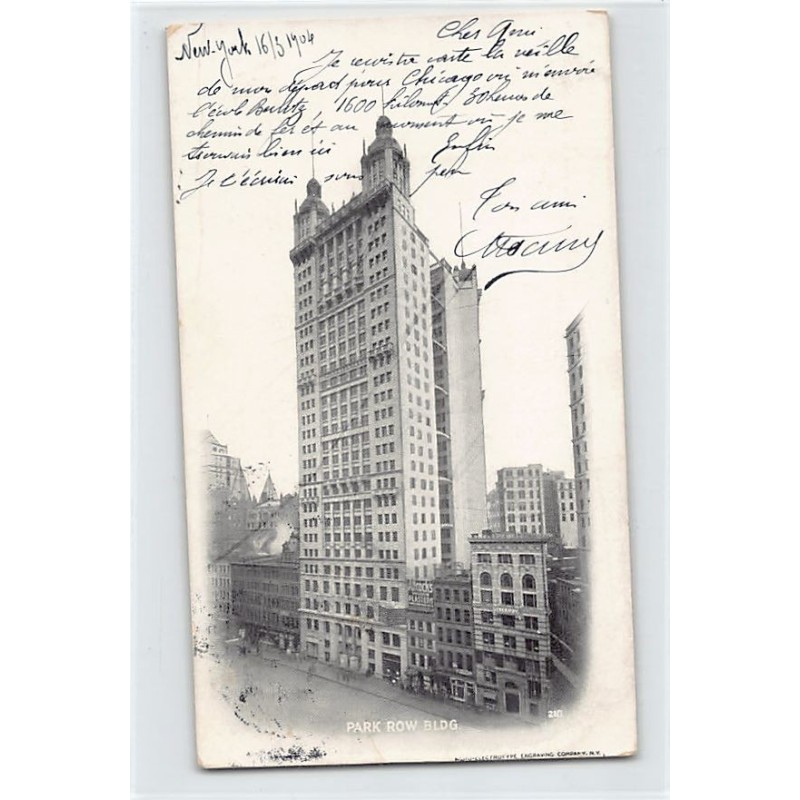 New-York 16/3 1904
Cher Ami
Je carte la veille
de mon départ pour Chicago où m'envoie
l'école 1600 kilomt 30 heures de
chemin de fer et au moment où je me
trouvais bien ici Enfin
Je t'écrirai sous peu
Ton ami
PARK ROW BLDG.
ENGRAVING COMPANY, N.Y.